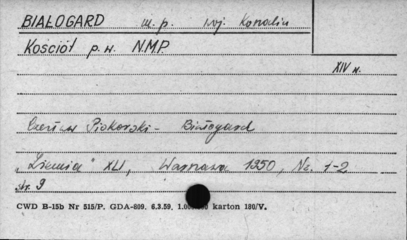 BIAŁOGARD m. p. woj. Koszalin
Kościół p.w. N.M.P.
XIV w.
Czesław Piskorski - Białogard
"Ziemia" XLI, Warszawa 1950, Nr. 1-2
str. 9
CWD B-15b Nr 515/P. GDA-809. 6.3.59. karton 180/V.